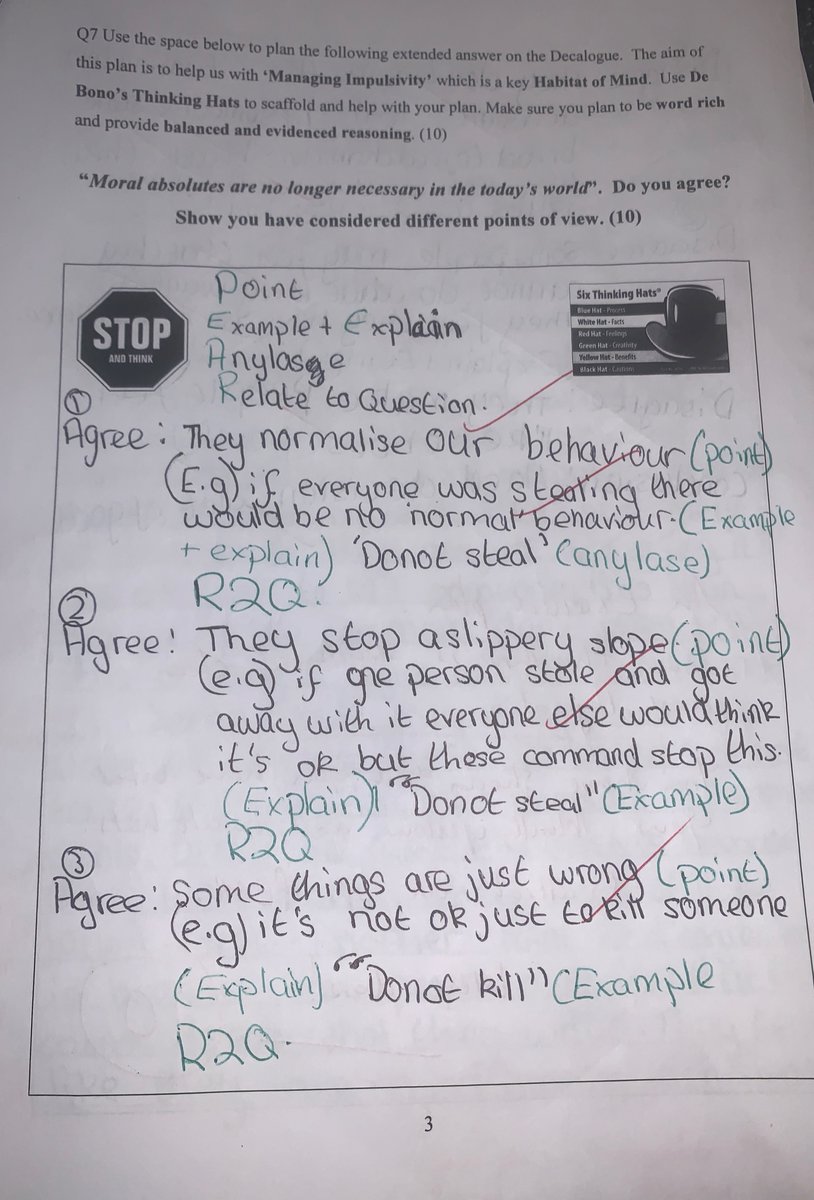 Q7 Use the space below to plan the following extended answer on the Decalogue. The aim of
this plan is to help us with ‘Managing Impulsivity’ which is a key Habitat of Mind. Use De
Bono’s Thinking Hats to scaffold and help with your plan. Make sure you plan to be word rich
and provide balanced and evidenced reasoning. (10)
“Moral absolutes are no longer necessary in the today’s world”. Do you agree?
Show you have considered different points of view. (10)
STOP
AND THINK
Six Thinking Hats®
Blue Hat - Process
White Hat - Facts
Red Hat - Feelings
Green Hat - Creativity
Yellow Hat - Benefits
Black Hat - Cautions
Point
Example + Explain
Anylasge
Relate to Question.
① 
Agree: They normalise our behaviour (point)
(E.g) if everyone was stealing there
would be no 'normal' behaviour. (Example
+ explain) 'Do not steal' (anylase)
R2Q.
②
Agree! They stop a slippery slope (point)
(e.g) if one person stole and got
away with it everyone else would think
it's ok but these command stop this.
(Explain) "Do not steal" (Example)
R2Q
③
Agree: Some things are just wrong (point)
(e.g) it's not ok just to kill someone
(Explain) "Do not kill" (Example
R2Q.
3